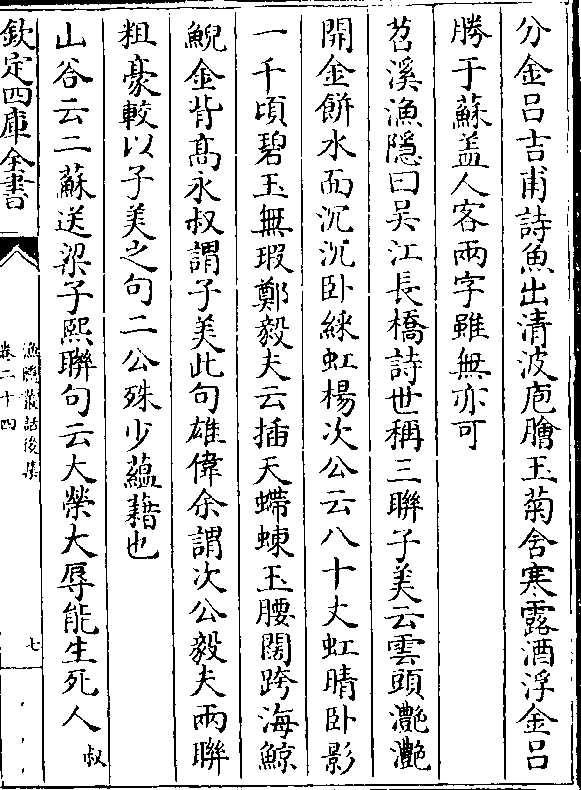 分金吕吉甫詩魚出清波庖膾玉菊含寒露酒浮金吕
勝于蘇盖人客兩字雖無亦可
苕溪漁隱曰吴江長橋詩世稱三聯子美云雲頭灔灔
開金餅水面沉沉卧綵虹楊次公云八十丈虹晴卧影
一千頃碧玉無瑕鄭毅夫云插天螮蝀玉腰闊跨海鯨
鯢金背髙永叔謂子美此句雄偉余謂次公毅夫兩聯
粗豪較以子美之句二公殊少蘊藉也
山谷云二蘇送梁子熙聯句云大榮大辱能生死人叔
欽定四庫全書
漁隱叢話後集
卷二十四
七